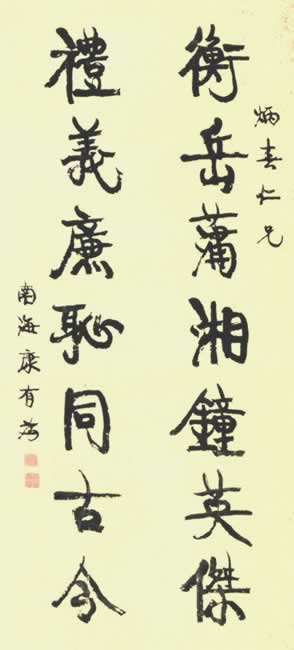 炳春仁兄
衡岳蕭湘鐘英傑
禮義廉恥同古今
南海康有為